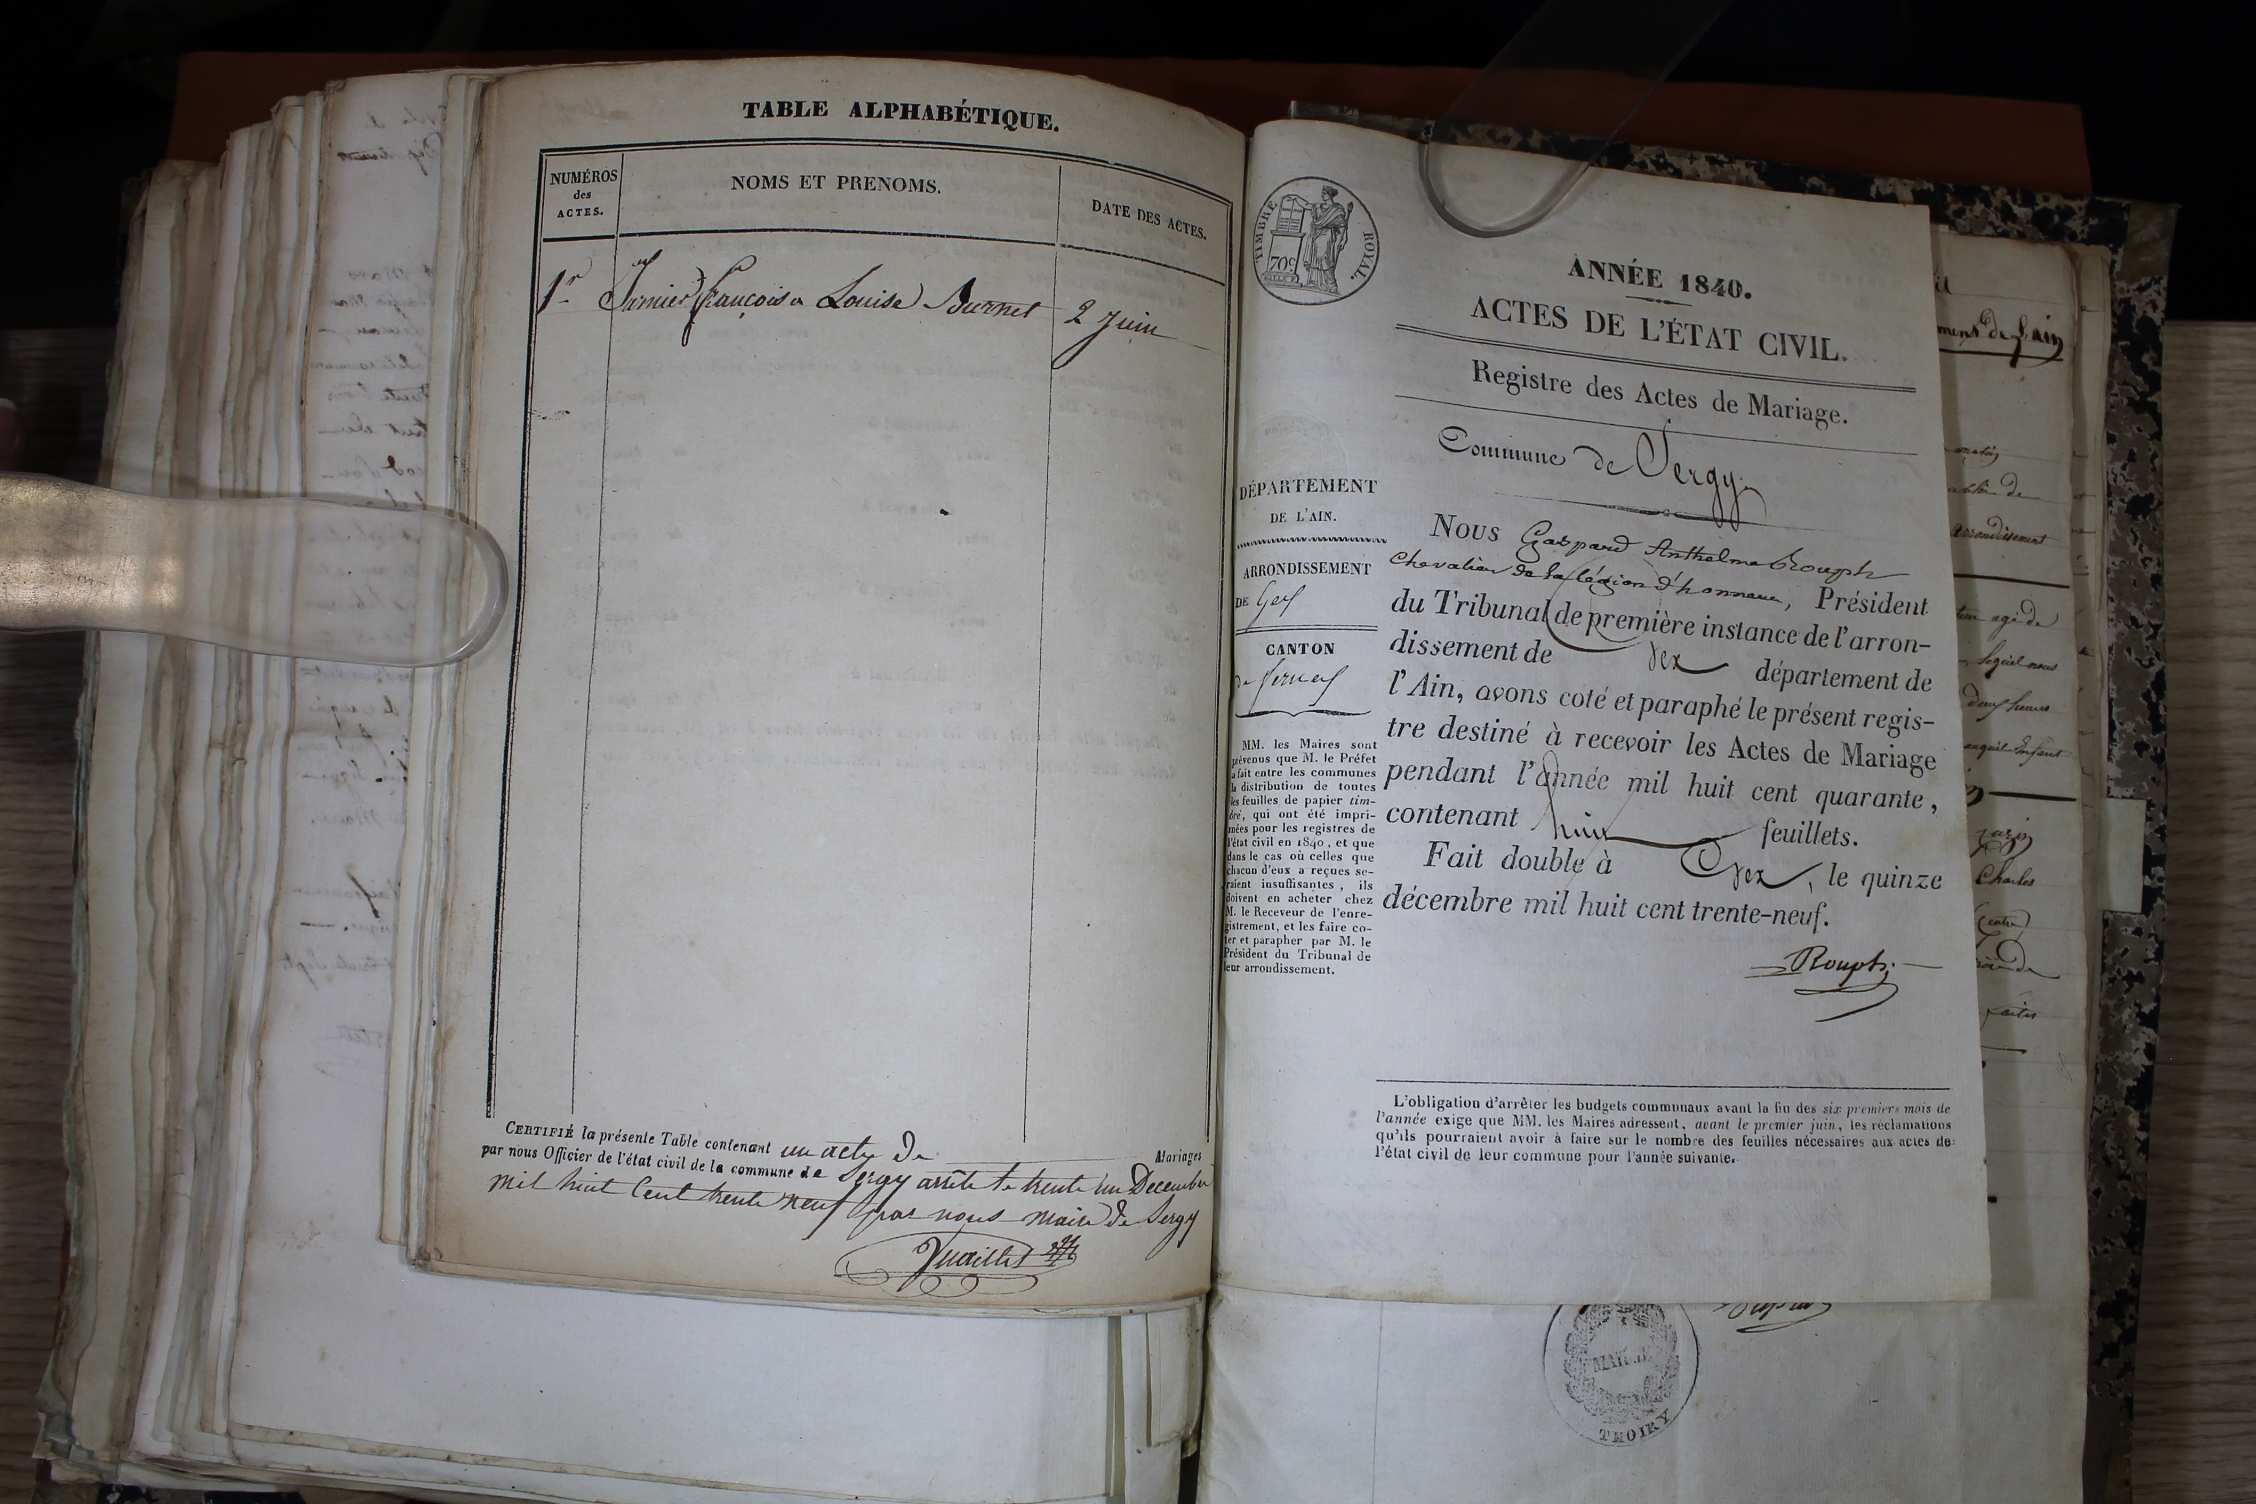 TABLE ALPHABÉTIQUE.
NUMÉROS
des
ACTES.
NOMS ET PRENOMS.
DATE DES ACTES.
1r François a Louise Burnet 2 Juin
CERTIFIÉ la présente Table contenant un acte de Mariages
par nous Officier de l'état civil de la commune de Sergy arrêté le trente un Decembre
mil huit Cent trente neuf par nous maire de Sergy
TIMBRE ROYAL.
70c
ANNÉE 1840.
ACTES DE L'ÉTAT CIVIL.
Registre des Actes de Mariage.
Commune de Sergy
DÉPARTEMENT
DE L'AIN.
ARRONDISSEMENT
DE Gex
CANTON
de Ferney
MM. les Maires sont
prévenus que M. le Préfet
a fait entre les communes
la distribution de toutes
les feuilles de papier tim-
bré, qui ont été impri-
mées pour les registres de
l'état civil en 1840, et que
dans le cas où celles que
chacun d'eux a reçues se-
raient insuffisantes, ils
doivent en acheter chez
M. le Receveur de l'enre-
gistrement, et les faire co-
ter et parapher par M. le
Président du Tribunal de
leur arrondissement.
Nous Gaspard Anthelme Rouph
Chevalier de la légion d'honneur, Président
du Tribunal de première instance de l'arron-
dissement de Gex département de
l'Ain, avons coté et paraphé le présent regis-
tre destiné à recevoir les Actes de Mariage
pendant l'année mil huit cent quarante,
contenant huit feuillets.
Fait double à Gex, le quinze
décembre mil huit cent trente-neuf.
Rouph
L'obligation d'arrêter les budgets communaux avant la fin des six premiers mois de
l'année exige que MM. les Maires adressent, avant le premier juin, les réclamations
qu'ils pourraient avoir à faire sur le nombre des feuilles nécessaires aux actes de
l'état civil de leur commune pour l'année suivante.
arrondissement
Charles
MAIRIE
THOIRY